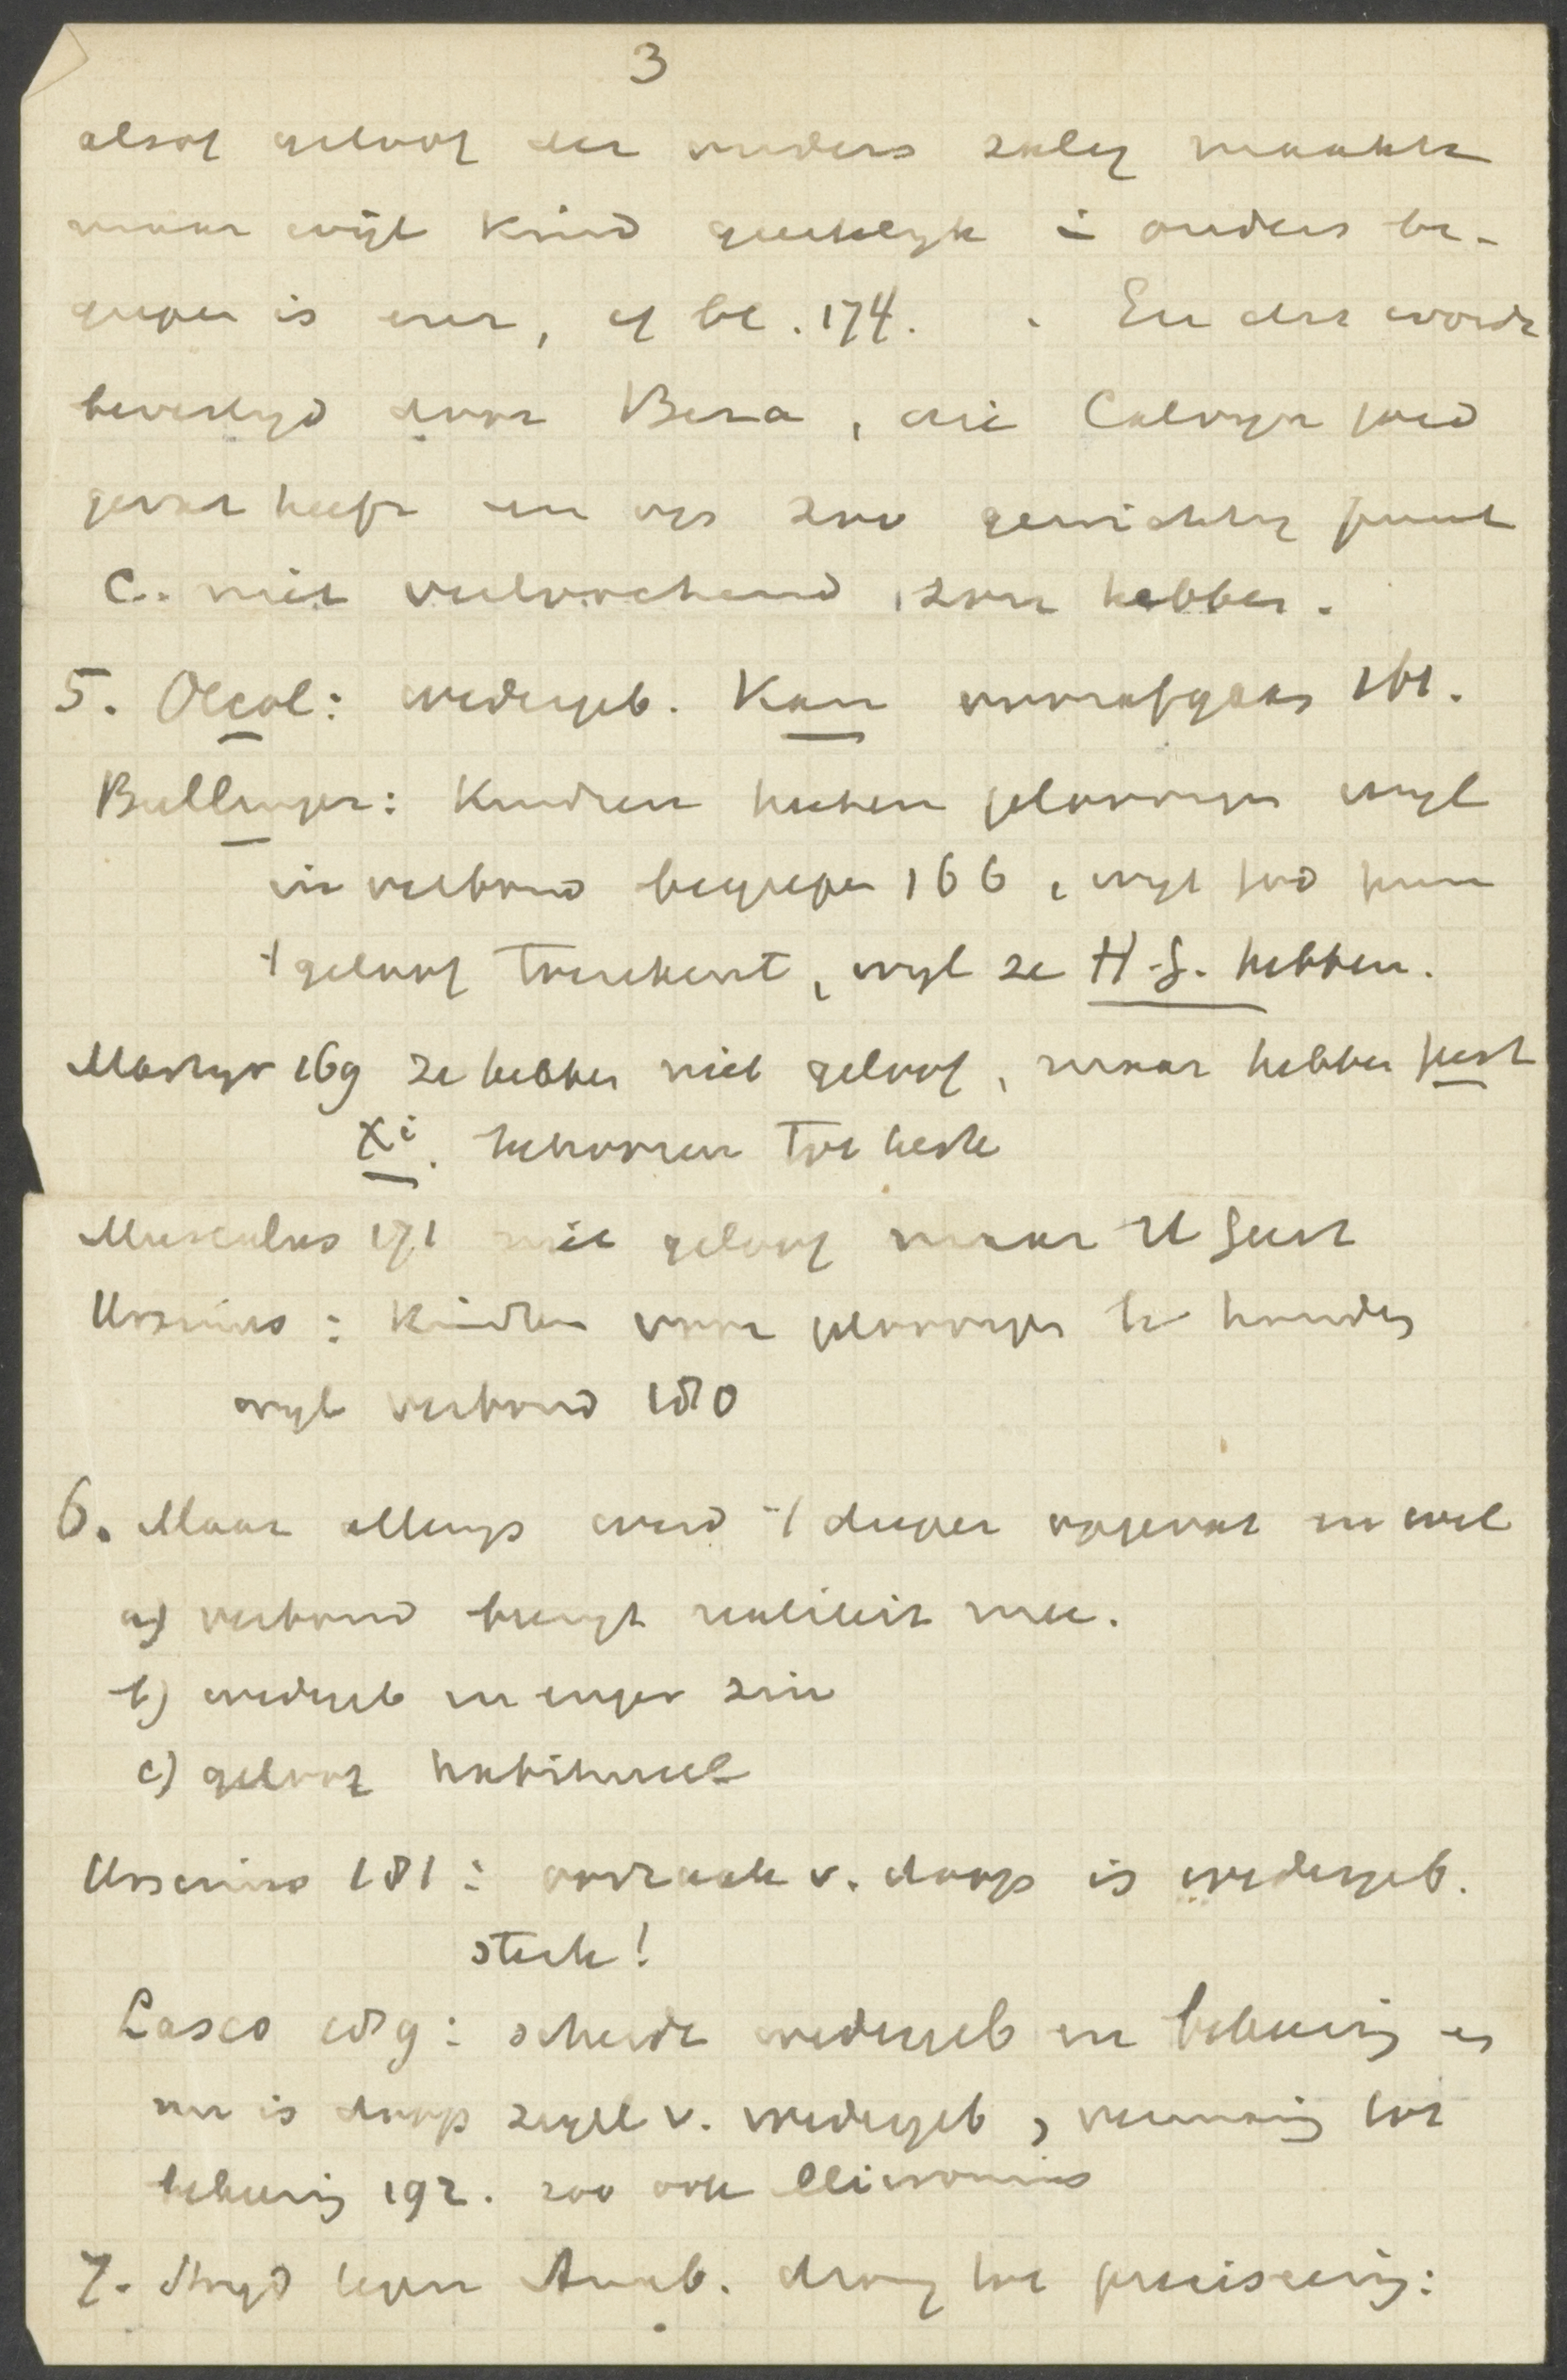 3
alsof geloof der ouders zalig maakte
maar wijl kind gerekelyk i ouders be-
grepen is enz, cf bl. 174. En dit wordt
bevestigd door Beza, die Calvyn goed
gevat heeft en op zoo gewichtig punt
C. niet verloochend zou hebben.
5. Oecol: wedergeb. Kan voorafgaan 161.
Bullinger: Kindren heeten geloovigen wyl
in verbond begrepen 166, wyl God hun
't geloof toerekent, wyl ze H.G. hebben.
Martyr 169 ze hebben niet geloof, maar hebben geest
Xi. behooren tot kerk
Musculus 171 niet geloof maar H Geest
Ursinus: Kindren voor geloovigen te houden
wyl verbond 180
6. Maar allengs werd 't dieper opgevat en wel
a) verbond brengt realiteit mee.
b) wedergeb in enger zin
c) geloof habitueel
Ursinus 181: oorzaak v. doop is wedergeb.
sterk!
Lasco 189: scheidt wedergeb en bekeering en
nu is doop zegel v. wedergeb, vermaning tot
bekeering 192. zoo ook Micronius
7. Stryd tegen Anab. drong tot preciseering: